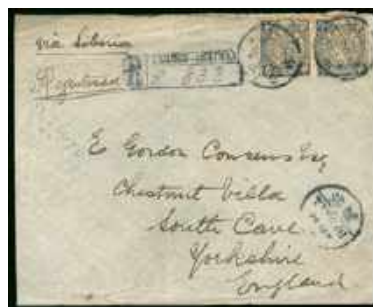 via Siberia
Registered
R
833
E Gordon Consens Esq
Chestnut Villa
South Cave
Yorkshire
England